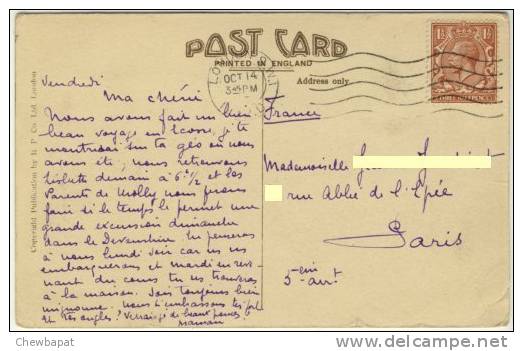 POST CARD
PRINTED IN ENGLAND
Address only
LONDON
OCT 14
3 45 PM
Copyright Publication by R. P. Co. Ltd. London
Vendredi
Ma chérie
Nous avons fait un bien
beau voyage en Ecosse, je te
montrerai sur ta géo où nous
avons été, nous retrouvons
Lisbette demain à 6h 1/2 et les
Parents de Molly nous ferons
faire si le temps le permet une
grande excursion dimanche
dans le Devonshire. Tu penseras
à nous lundi soir car nous
embarquerons et mardi en reve
nant du cours tu nous trouveras
à la maison. Sois toujours bien
mignonne. Nous t'embrassons très fort
et tes ongles?
maman
France
Mademoiselle
rue Abbé de l'Epée
Paris
5em arrt
Chewbapat
www.delcampe.net